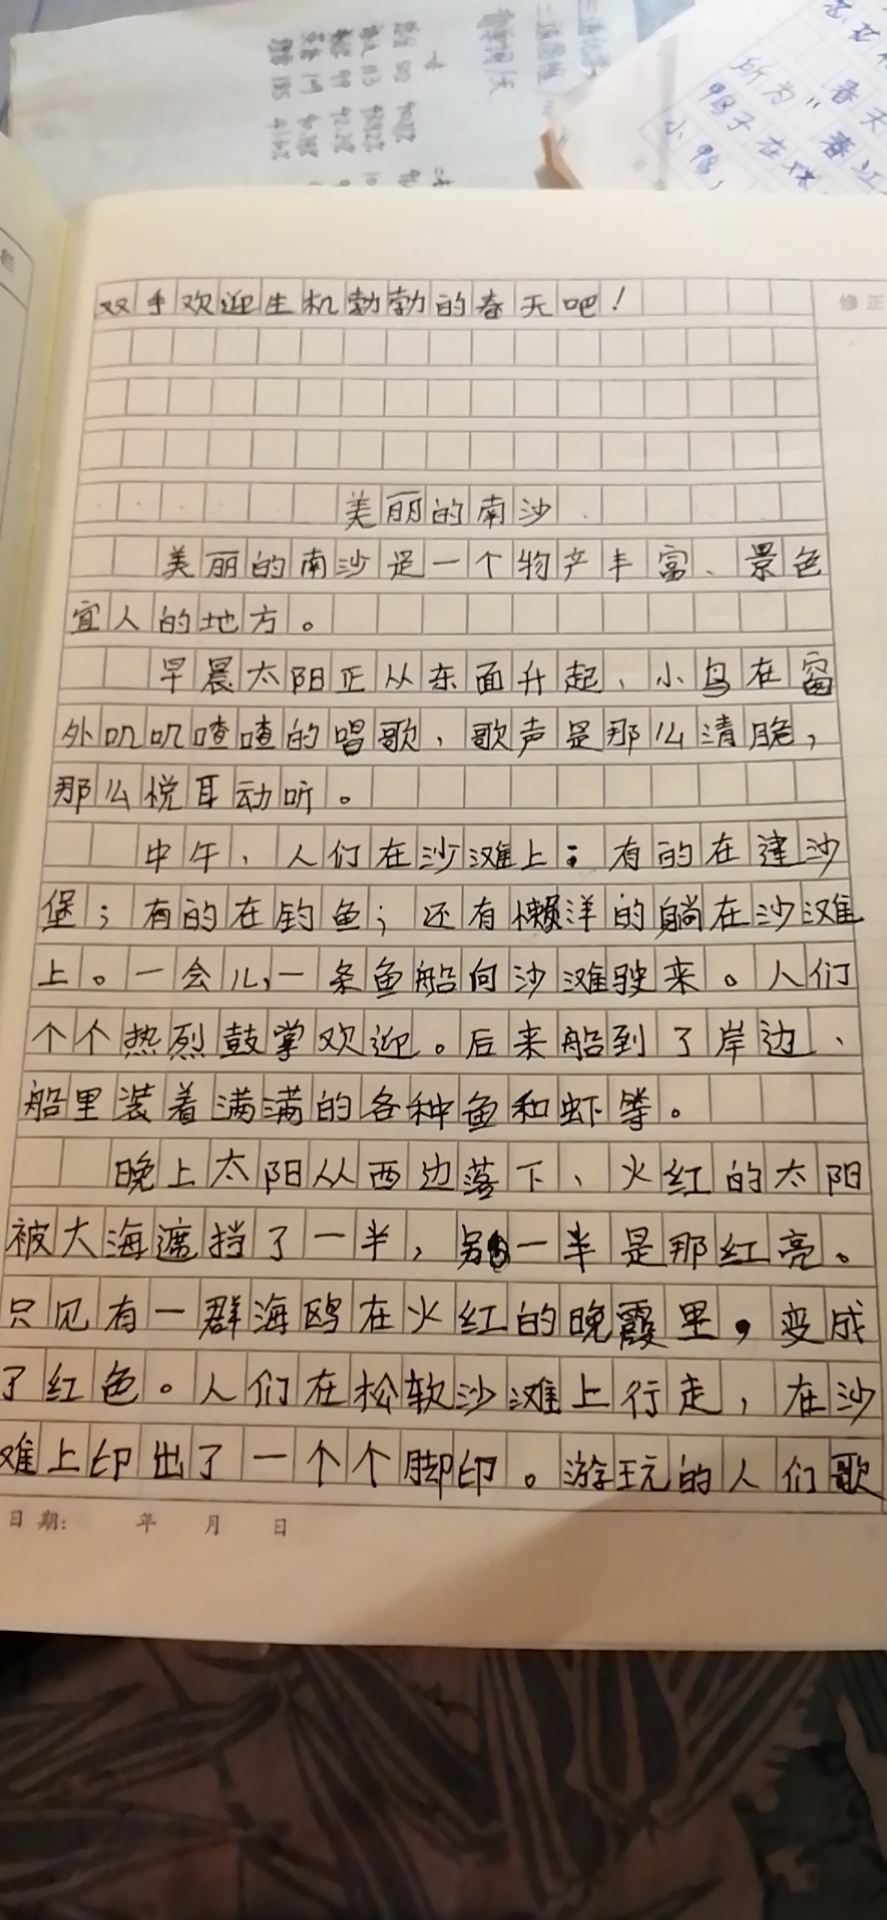 芯花
所为"春天
鸭子在
春江
小鸭
修正
双手欢迎生机勃勃的春天吧！
美丽的南沙
美丽的南沙是一个物产丰富、景色
宜人的地方。
早晨太阳正从东面升起、小鸟在窗
外叽叽喳喳的唱歌，歌声是那么清脆，
那么悦耳动听。
中午，人们在沙滩上：有的在建沙
堡；有的在钓鱼；还有懒洋的躺在沙滩
上。一会儿，一条鱼船向沙滩驶来。人们
个个热烈鼓掌欢迎。后来船到了岸边、
船里装着满满的各种鱼和虾等。
晚上太阳从西边落下、火红的太阳
被大海遮挡了一半，另一半是那红亮。
只见有一群海鸥在火红的晚霞里，变成
了红色。人们在松软沙滩上行走，在沙
难上印出了一个个脚印。游玩的人们歌
日期：年月日